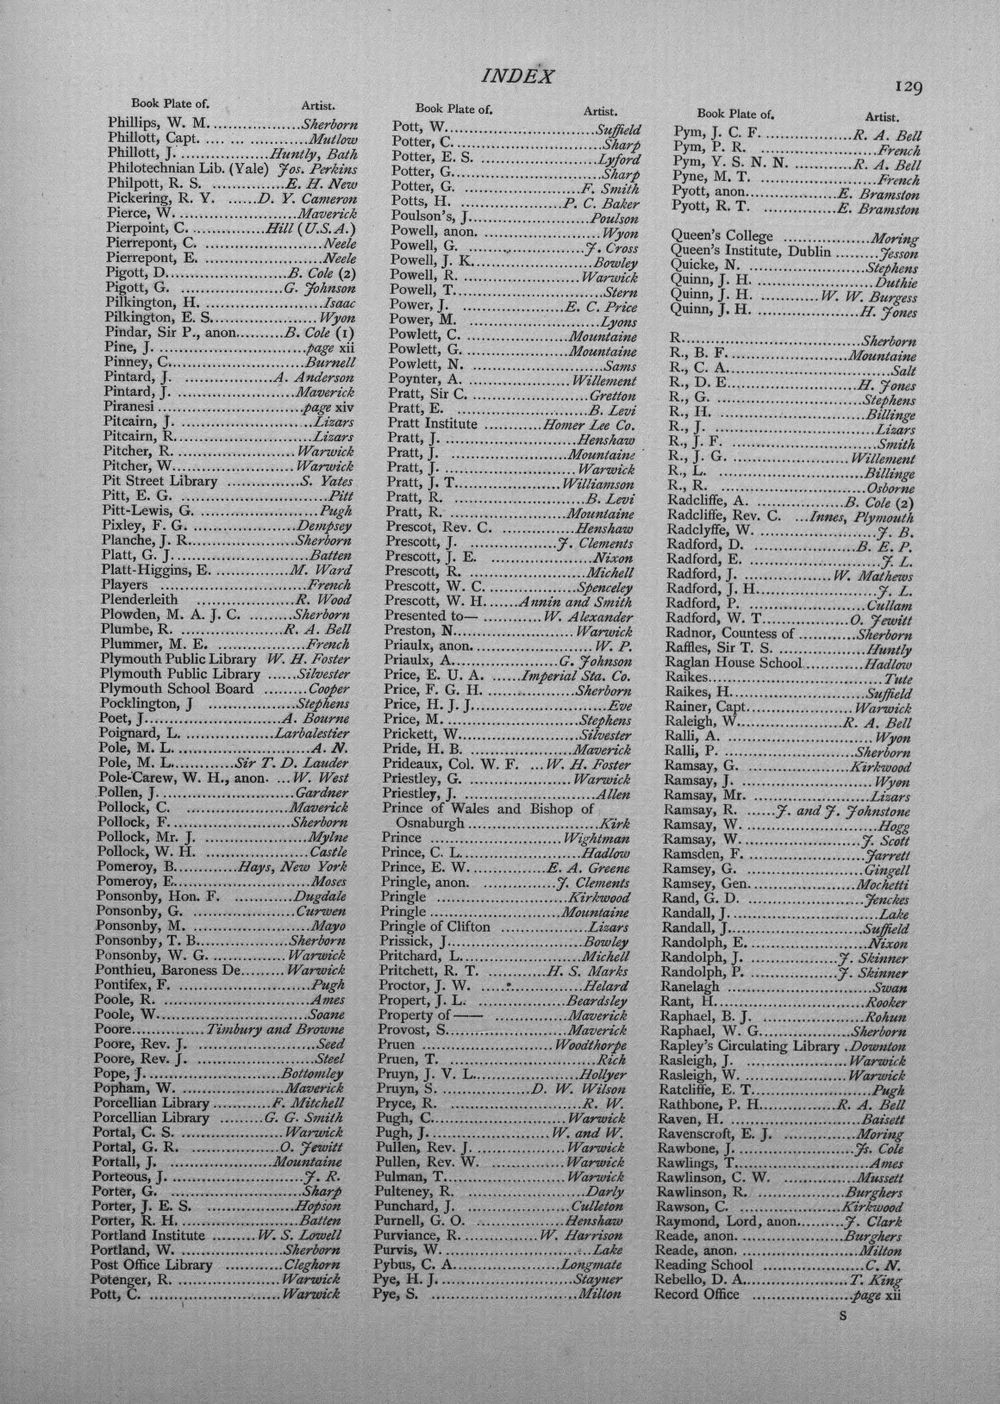 INDEX
129
Book Plate of. Artist.
Phillips, W. M. ..................Sherborn
Phillott, Capt. .... ... ..............Mutlow
Phillott, J. ..................Huntly, Bath
Philotechnian Lib. (Yale) Jos. Perkins
Philpott, R. S. ...............E. H. New
Pickering, R. Y. ......D. Y. Cameron
Pierce, W. .........................Maverick
Pierpoint, C. ...............Hill (U.S.A.)
Pierrepont, C. ........................Neele
Pierrepont, E. ........................Neele
Pigott, D. ........................B. Cole (2)
Pigott, G. .......................G. Johnson
Pilkington, H. ........................Isaac
Pilkington, E. S. ......................Wyon
Pindar, Sir P., anon. .........B. Cole (1)
Pine, J. ..............................page xii
Pinney, C. ...........................Burnell
Pintard, J. ..................A. Anderson
Pintard, J. .........................Maverick
Piranesi ..............................page xiv
Pitcairn, J. ...........................Lizars
Pitcairn, R. ...........................Lizars
Pitcher, R. .........................Warwick
Pitcher, W. .........................Warwick
Pit Street Library ...............S. Yates
Pitt, E. G. ................................Pitt
Pitt-Lewis, G. ..........................Pugh
Pixley, F. G. .....................Dempsey
Planche, J. R. ......................Sherborn
Platt, G. J. ...........................Batten
Platt-Higgins, E. ...............M. Ward
Players .................................French
Plenderleith ....................R. Wood
Plowden, M. A. J. C. .........Sherborn
Plumbe, R. .....................R. A. Bell
Plummer, M. E. .....................French
Plymouth Public Library W. H. Foster
Plymouth Public Library ......Silvester
Plymouth School Board .........Cooper
Pocklington, J ..................Stephens
Poet, J. ...........................A. Bourne
Poignard, L. ..................Larbalestier
Pole, M. L. ...........................A. N.
Pole, M. L. ............Sir T. D. Lauder
Pole-Carew, W. H., anon. ...W. West
Pollen, J. ...........................Gardner
Pollock, C. ........................Maverick
Pollock, F. ........................Sherborn
Pollock, Mr. J. .....................Mylne
Pollock, W. H. .....................Castle
Pomeroy, B. ............Hays, New York
Pomeroy, E. ...........................Moses
Ponsonby, Hon. F. ............Dugdale
Ponsonby, G. .....................Curwen
Ponsonby, M. ........................Mayo
Ponsonby, T. B. ..................Sherborn
Ponsonby, W. G. ...............Warwick
Ponthieu, Baroness De .........Warwick
Pontifex, F. ...........................Pugh
Poole, R. ..............................Ames
Poole, W. ..............................Soane
Poore ...............Timbury and Browne
Poore, Rev. J. ........................Seed
Poore, Rev. J. ........................Steel
Pope, J. ...........................Bottomley
Popham, W. .....................Maverick
Porcellian Library ............F. Mitchell
Porcellian Library .........G. G. Smith
Portal, C. S. .....................Warwick
Portal, G. R. .....................O. Jewitt
Portall, J. .....................Mountaine
Porteous, J. ...........................J. R.
Porter, G. ...........................Sharp
Porter, J. E. S. .....................Hopson
Porter, R. H. ........................Batten
Portland Institute .........W. S. Lowell
Portland, W. .....................Sherborn
Post Office Library ............Cleghorn
Potenger, R. .....................Warwick
Pott, C. ...........................Warwick
Book Plate of. Artist.
Pott, W. ..............................Suffield
Potter, C. ..............................Sharp
Potter, E. S. ........................Lyford
Potter, G. ..............................Sharp
Potter, G. ........................F. Smith
Potts, H. .....................P. C. Baker
Poulson's, J. ........................Poulson
Powell, anon. ........................Wyon
Powell, G. ........................J. Cross
Powell, J. K. ........................Bowley
Powell, R. ........................Warwick
Powell, T. ..............................Stern
Power, J. .....................E. C. Price
Power, M. ...........................Lyons
Powlett, C. .....................Mountaine
Powlett, G. .....................Mountaine
Powlett, N. ...........................Sams
Poynter, A. .....................Willement
Pratt, Sir C. ........................Gretton
Pratt, E. ........................B. Levi
Pratt Institute ............Homer Lee Co.
Pratt, J. ........................Henshaw
Pratt, J. .....................Mountaine
Pratt, J. ........................Warwick
Pratt, J. T. .....................Williamson
Pratt, R. ........................B. Levi
Pratt, R. .....................Mountaine
Prescot, Rev. C. ...............Henshaw
Prescott, J. ..................J. Clements
Prescott, J. E. ........................Nixon
Prescott, R. ........................Michell
Prescott, W. C. ..................Spenceley
Prescott, W. H. ......Annin and Smith
Presented to— ............W. Alexander
Preston, N. ........................Warwick
Priaulx, anon. ........................W. P.
Priaulx, A. ..................G. Johnson
Price, E. U. A. ......Imperial Sta. Co.
Price, F. G. H. ..................Sherborn
Price, H. J. J. ...........................Eve
Price, M. ........................Stephens
Prickett, W. ........................Silvester
Pride, H. B. .....................Maverick
Prideaux, Col. W. F. ...W. H. Foster
Priestley, G. .....................Warwick
Priestley, J. ...........................Allen
Prince of Wales and Bishop of
Osnaburgh ........................Kirk
Prince ........................Wightman
Prince, C. L. ........................Hadlow
Prince, E. W. ...............E. A. Greene
Pringle, anon. ...............J. Clements
Pringle ........................Kirkwood
Pringle ........................Mountaine
Pringle of Clifton ..................Lizars
Prissick, J. ........................Bowley
Pritchard, L. .....................Michell
Pritchett, R. T. ............H. S. Marks
Proctor, J. W. .....................Helard
Propert, J. L. ..................Beardsley
Property of —— ...............Maverick
Provost, S. ........................Maverick
Pruen .....................Woodthorpe
Pruen, T. ...........................Rich
Pruyn, J. V. L. .....................Hollyer
Pruyn, S. ..................D. W. Wilson
Pryce, R. ........................R. W.
Pugh, C. ........................Warwick
Pugh, J. .....................W. and W.
Pullen, Rev. J. ..................Warwick
Pullen, Rev. W. ...............Warwick
Pulman, T. ........................Warwick
Pulteney, R. ........................Darly
Punchard, J. .....................Culleton
Purnell, G. O. ..................Henshaw
Purviance, R. ...............W. Harrison
Purvis, W. ...........................Lake
Pybus, C. A. .....................Longmate
Pye, H. J. ........................Stayner
Pye, S. ...........................Milton
Book Plate of. Artist.
Pym, J. C. F. ..................R. A. Bell
Pym, P. R. ........................French
Pym, Y. S. N. N. ............R. A. Bell
Pyne, M. T. ........................French
Pyott, anon. ..................E. Bramston
Pyott, R. T. ...............E. Bramston
Queen's College ..................Moring
Queen's Institute, Dublin .........Jesson
Quicke, N. ........................Stephens
Quinn, J. H. ........................Duthie
Quinn, J. H. ............W. W. Burgess
Quinn, J. H. .....................H. Jones
R. ....................................Sherborn
R., B. F. ........................Mountaine
R., C. A. ..............................Salt
R., D. E. ........................H. Jones
R., G. ..............................Stephens
R., H. ..............................Billinge
R., J. .................................Lizars
R., J. F. ..............................Smith
R., J. G. ........................Willement
R., L. ..............................Billinge
R., R. ..............................Osborne
Radcliffe, A. .....................B. Cole (2)
Radcliffe, Rev. C. ...Innes, Plymouth
Radclyffe, W. ........................J. B.
Radford, D. .....................B. E. P.
Radford, E. ...........................J. L.
Radford, J. ..................W. Mathews
Radford, J. H. ........................J. L.
Radford, P. ........................Cullam
Radford, W. T. ..................O. Jewitt
Radnor, Countess of ............Sherborn
Raffles, Sir T. S. ..................Huntly
Raglan House School ............Hadlow
Raikes ..............................Tute
Raikes, H. ........................Suffield
Rainer, Capt. .....................Warwick
Raleigh, W. .....................R. A. Bell
Ralli, A. ...........................Wyon
Ralli, P. ........................Sherborn
Ramsay, G. .....................Kirkwood
Ramsay, J. ........................Wyon
Ramsay, Mr. .....................Lizars
Ramsay, R. ......J. and J. Johnstone
Ramsay, W. ........................Hogg
Ramsay, W. .....................J. Scott
Ramsden, F. .....................Jarrett
Ramsey, G. ........................Gingell
Ramsey, Gen. .....................Mochetti
Rand, G. D. .....................Jenckes
Randall, J. ...........................Lake
Randall, J. ........................Suffield
Randolph, E. .....................Nixon
Randolph, J. ..................J. Skinner
Randolph, P. ..................J. Skinner
Ranelagh ...........................Swan
Rant, H. ...........................Rooker
Raphael, B. J. .....................Rohun
Raphael, W. G. ..................Sherborn
Rapley's Circulating Library .Downton
Rasleigh, J. .....................Warwick
Rasleigh, W. .....................Warwick
Ratcliffe, E. T. .....................Pugh
Rathbone, P. H. ...............R. A. Bell
Raven, H. ........................Baisett
Ravenscroft, E. J. ...............Moring
Rawbone, J. .....................Js. Cole
Rawlings, T. ........................Ames
Rawlinson, C. W. ...............Mussett
Rawlinson, R. ..................Burghers
Rawson, C. .....................Kirkwood
Raymond, Lord, anon. .........J. Clark
Reade, anon. .....................Burghers
Reade, anon. ........................Milton
Reading School .....................C. N.
Rebello, D. A. .....................T. King
Record Office .....................page xii
S